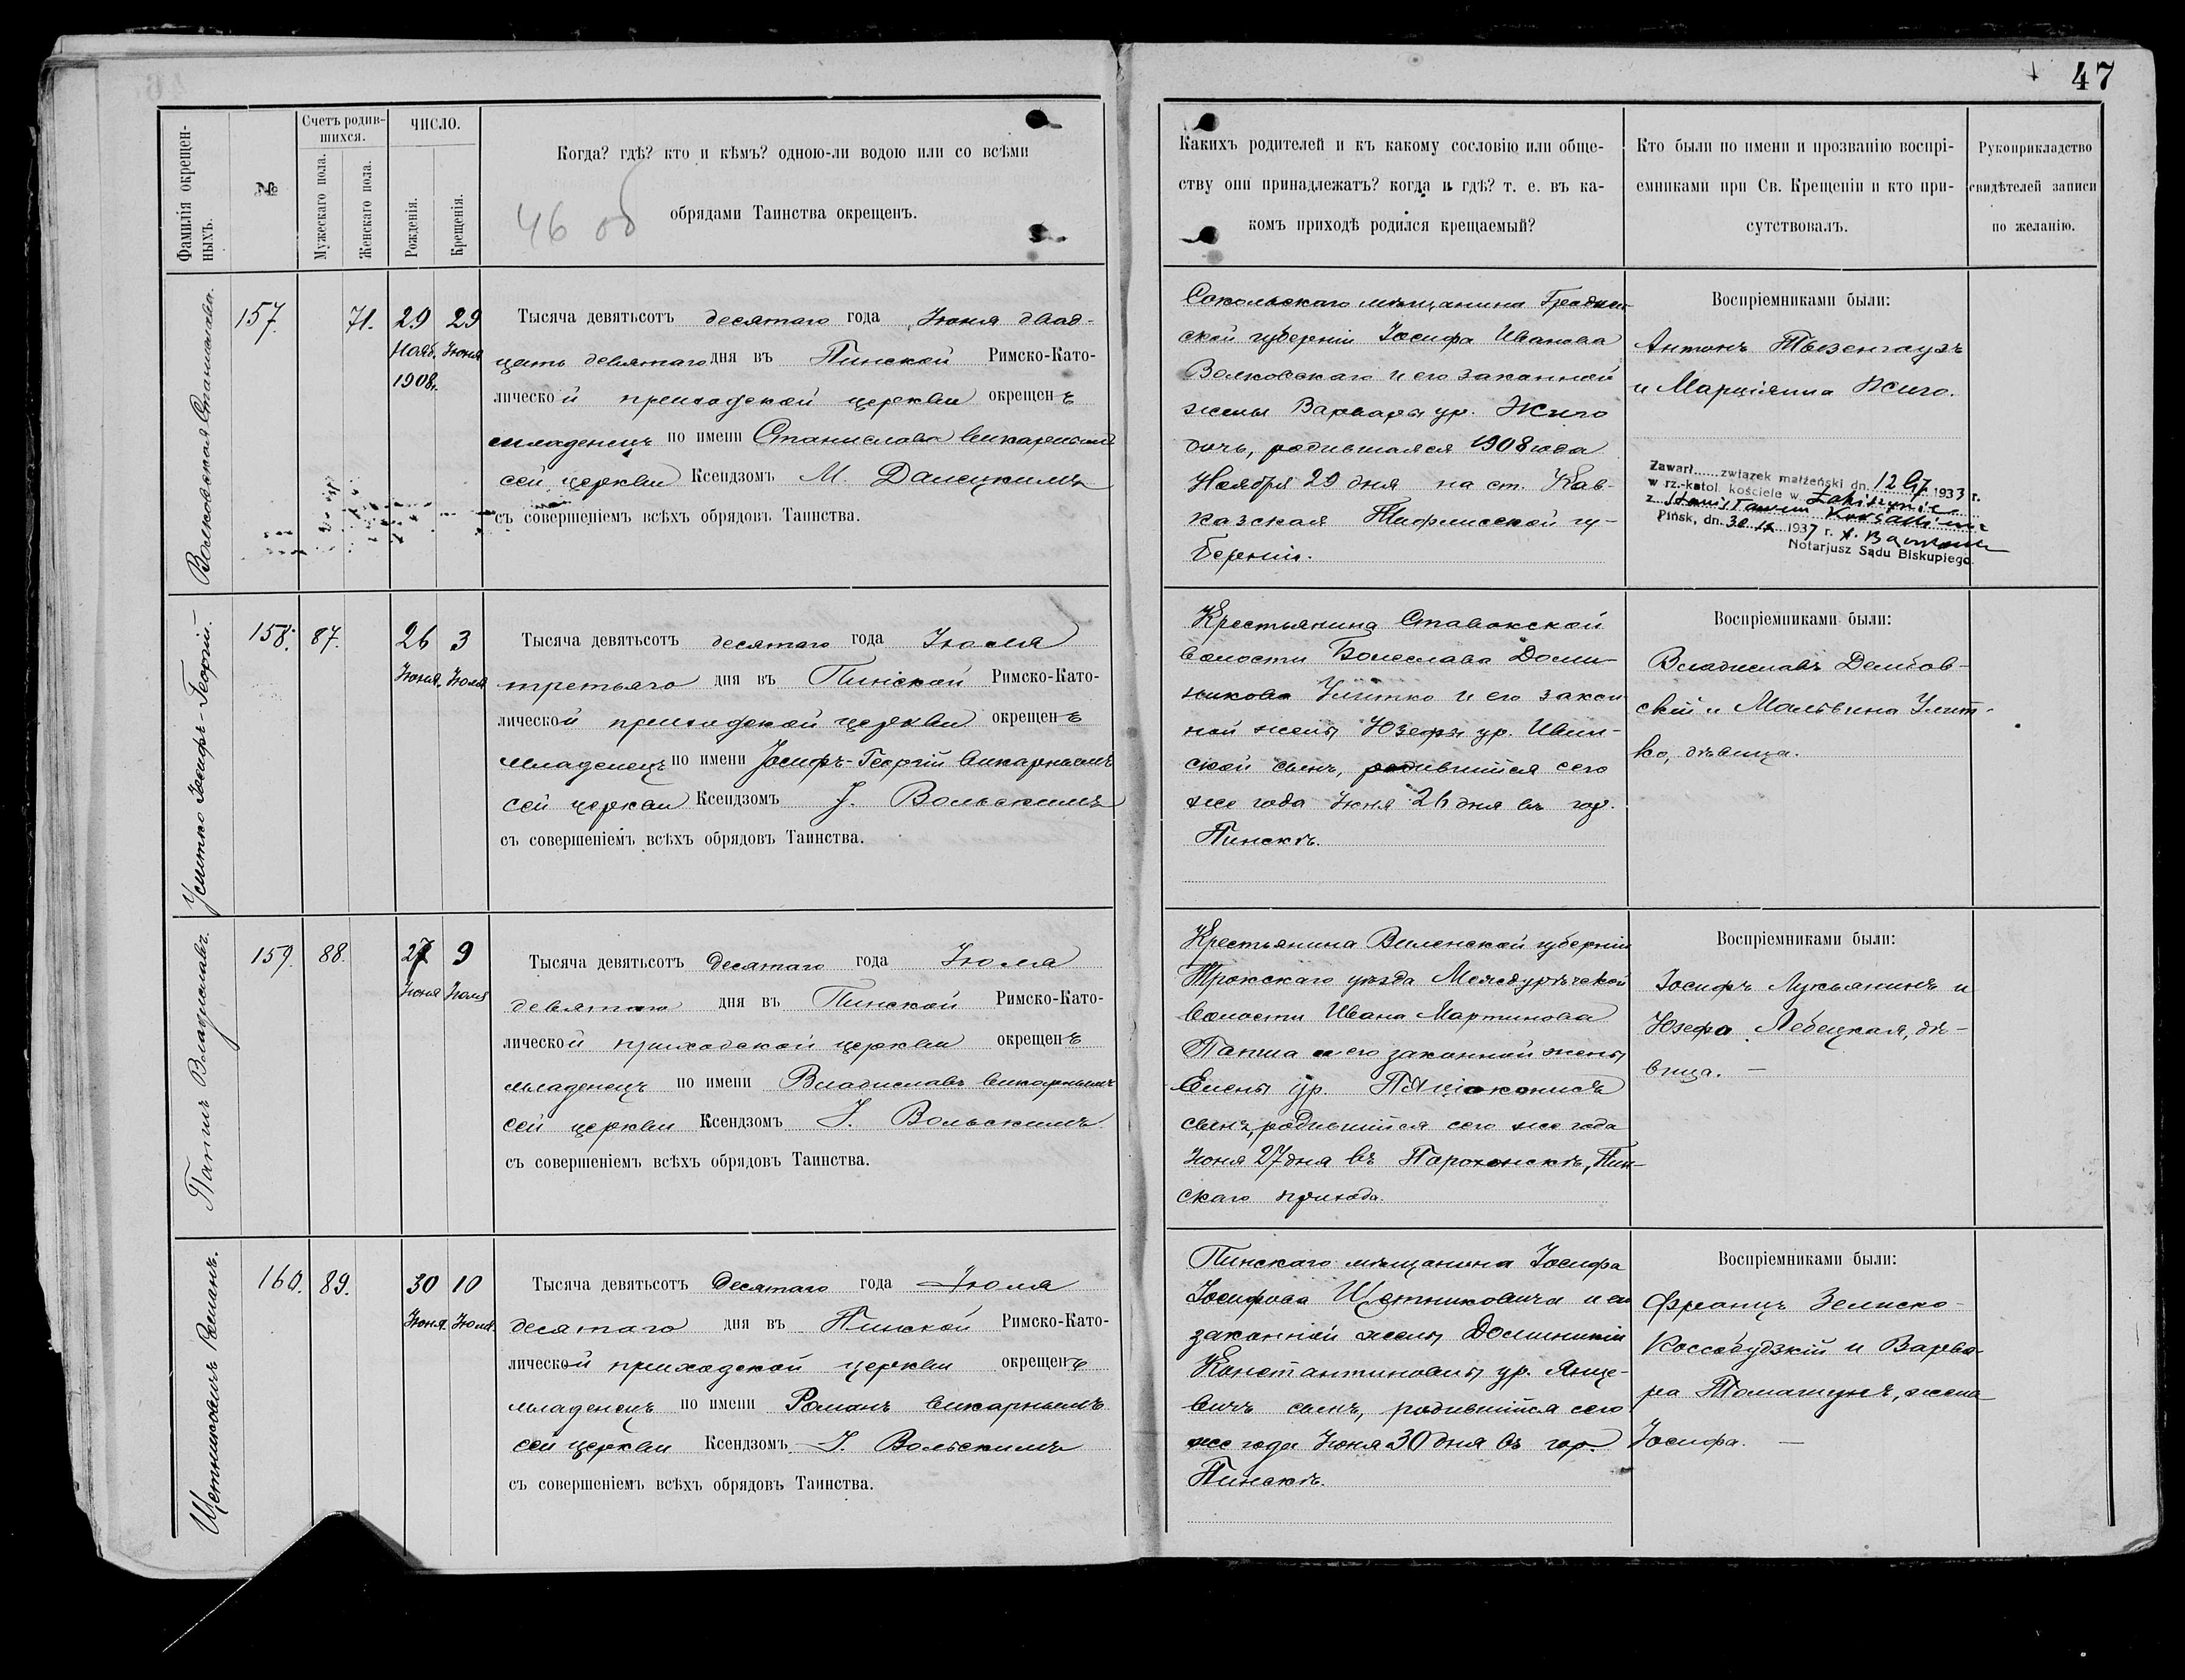 47
Фамилія окрещен-
ныхъ.
№
Счетъ родив-
шихся.
Мужескаго пола.
Женскаго пола.
ЧИСЛО.
Рожденія.
Крещенія.
Когда? гдѣ? кто и кѣмъ? одною-ли водою или со всѣми
обрядами Таинства окрещенъ.
46 об
Какихъ родителей и къ какому сословію или обще-
ству они принадлежатъ? когда и гдѣ? т. е. въ ка-
комъ приходѣ родился крещаемый?
Кто были по имени и прозванію воспрі-
емниками при Св. Крещеніи и кто при-
сутствовалъ.
Рукоприкладство
свидѣтелей записи
по желанію.
Волковская Станислава.
157.
71.
29 29
Нояб. Іюня
1908.
Тысяча девятьсотъ десятаго года Іюня двад-
цать девятаго дня въ Пинской Римско-Като-
лической приходской церкви окрещенъ
младенецъ по имени Станислава викарнымъ
сей церкви Ксендзомъ М. Далецкимъ
съ совершеніемъ всѣхъ обрядовъ Таинства.
Сокольскаго мѣщанина Гроднен-
ской губерніи Іосифа Иванова
Волковскаго и его законной
жены Варвары ур. Жиго
дочь, родившаяся 1908 года
Ноября 29 дня на ст. Кав-
казская Тифлисской гу-
берніи.
Воспріемниками были:
Антонъ Тызенгаузъ
и Марціянна Жиго.
Zawarł...... związek małżeński dn. 12 IV 1933 r.
w rz.-katol. kościele w
z Stanisławem
Pińsk, dn. 30. IX 1937 r.
Notarjusz Sądu Biskupiego.
Улитко Іосифъ-Георгій.
158.
87.
26 3
Іюня. Іюля
Тысяча девятьсотъ десятаго года Іюля
третьяго дня въ Пинской Римско-Като-
лической приходской церкви окрещенъ
младенецъ по имени Іосифъ-Георгій викарнымъ
сей церкви Ксендзомъ I. Вольскимъ
съ совершеніемъ всѣхъ обрядовъ Таинства.
Крестьянина Ставокской
волости Болеслава Доми-
никова Улитко и его закон
ной жены Юзефы ур. Ивин-
ской сынъ, родившійся сего
же года Іюня 26 дня въ гор.
Пинскѣ.
Воспріемниками были:
Владиславъ Дембов-
скій и Мальвина Улит-
ко, дѣвица.
Папшъ Владиславъ.
159.
88.
27 9
Іюня Іюля
Тысяча девятьсотъ десятаго года Іюля
девятаго дня въ Пинской Римско-Като-
лической приходской церкви окрещенъ
младенецъ по имени Владиславъ викарнымъ
сей церкви Ксендзомъ I. Вольскимъ
съ совершеніемъ всѣхъ обрядовъ Таинства.
Крестьянина Виленской губерніи
Трокскаго уѣзда Междурѣчской
волости Ивана Мартинова
Папша и его законной жены
Елены ур.
сынъ, родившійся сего же года
Іюня 27 дня въ Парохонскѣ, Пин-
скаго прихода.
Воспріемниками были:
Іосифъ Лукьянинъ и
Юзефа Лебецкая, дѣ-
вица. —
Щетниковичъ Романъ.
160.
89.
30 10
Іюня. Іюля.
Тысяча девятьсотъ десятаго года Іюля
десятаго дня въ Пинской Римско-Като-
лической приходской церкви окрещенъ
младенецъ по имени Романъ викарнымъ
сей церкви Ксендзомъ I. Вольскимъ
съ совершеніемъ всѣхъ обрядовъ Таинства.
Пинскаго мѣщанина Іосифа
Іосифова Щетниковича и его
законной жены Доминикіи
Константиновны ур. Янце-
вичъ сынъ, родившійся сего
же года Іюня 30 дня въ гор.
Пинскѣ.
Воспріемниками были:
Францъ Зелиско-
Коссобудзкій и Варва-
ра Томашунъ, жена
Іосифа. —